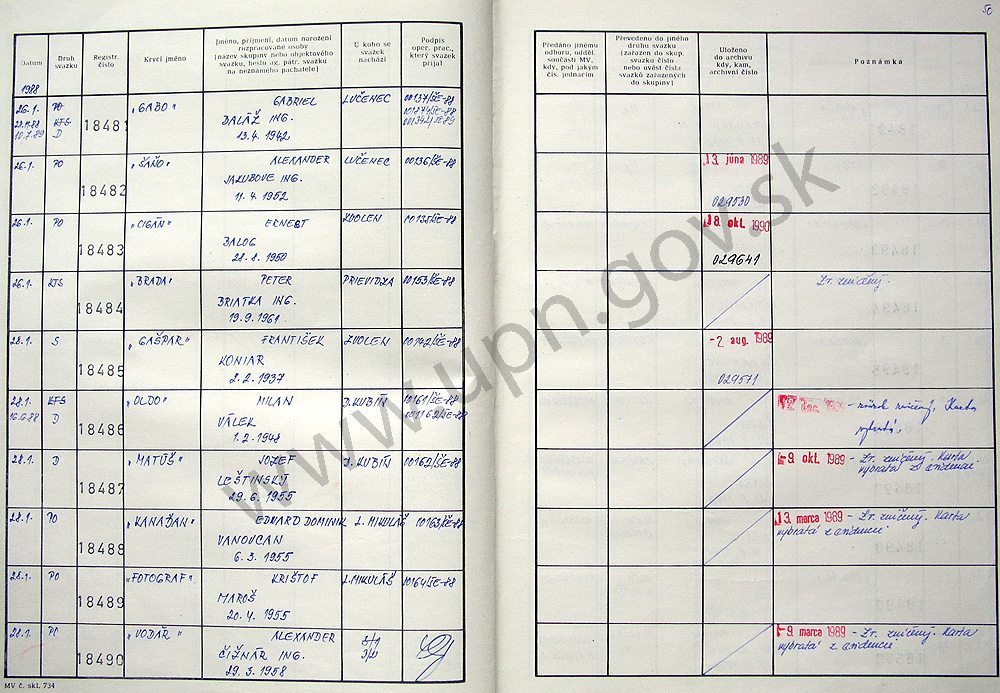 50
Datum
Druh svazku
Registr. číslo
Krycí jméno
Jméno, příjmení, datum narození rozpracované osoby
[název skupiny nebo objektového svazku, heslo ag. pátr. svazku na neznámého pachatele]
U koho se svazek nachází
Podpis oper. prac., který svazek přijal
Předáno jinému odboru, odděl. součásti MV, kdy, pod jakým čís. jednacím
Převedeno do jiného druhu svazku [zařazen do skup. svazku číslo nebo uvést čísla svazků zařazených do skupiny]
Uloženo do archivu kdy, kam, archivní číslo
Poznámka
1988
26.1. PO 18481 "GABO" GABRIEL LUČENEC 00137/ŠE-88
KFS
10.7.89 D BALÁŽ ING.
13.4.1942
26.1. PO 18482 "ŠAŇO" ALEXANDER LUČENEC 00136/ŠE-88 13. júna 1989
JAKUBOVE ING.
11.4.1952 029530
26.1. PO 18483 "CIGÁŇ" ERNEST ZVOLEN 00135/ŠE-88 18. okt. 1990
BALOG
1950 029641
26.1. KTS 18484 "BRADA" PETER PRIEVIDZA 00153/ŠE-88 Zv. zničený.
BRIATKA ING.
19.9.1961
28.1. S 18485 "GAŠPAR" FRANTIŠEK ZVOLEN 00142/ŠE-88 -2. aug. 1989
KONIAR
2.2.1937 029571
28.1. KFS 18486 "OLDO" MILAN D. KUBÍN 00161/ŠE-88 1989 - zničený. Karta
16.6.88 D VÁLEK
1.2.1948 vybratá.
28.1. D 18487 "MATÚŠ" JOZEF D. KUBÍN 00162/ŠE-88 -9. okt. 1989 - Zv. zničený. Karta
LEŠTINSKÝ vybratá z evidencie
29.6.1955
28.1. PO 18488 "KANAĎAN" EDUARD DOMINIK L. MIKULÁŠ 00163/ŠE-88 13. marca 1989 - Zv. zničený. Karta
VANOVCAN vybratá z evidencie
6.3.1955
28.1. PO 18489 "FOTOGRAF" KRIŠTOF L. MIKULÁŠ 00164/ŠE-88
MAROŠ
20.4.1955
28.1. PO 18490 "VODÁR" ALEXANDER -9. marca 1989 - Zv. zničený. Karta
ČIŽNÁR ING. vybratá z evidencie
29.3.1958
MV č. skl. 734
www.upn.gov.sk